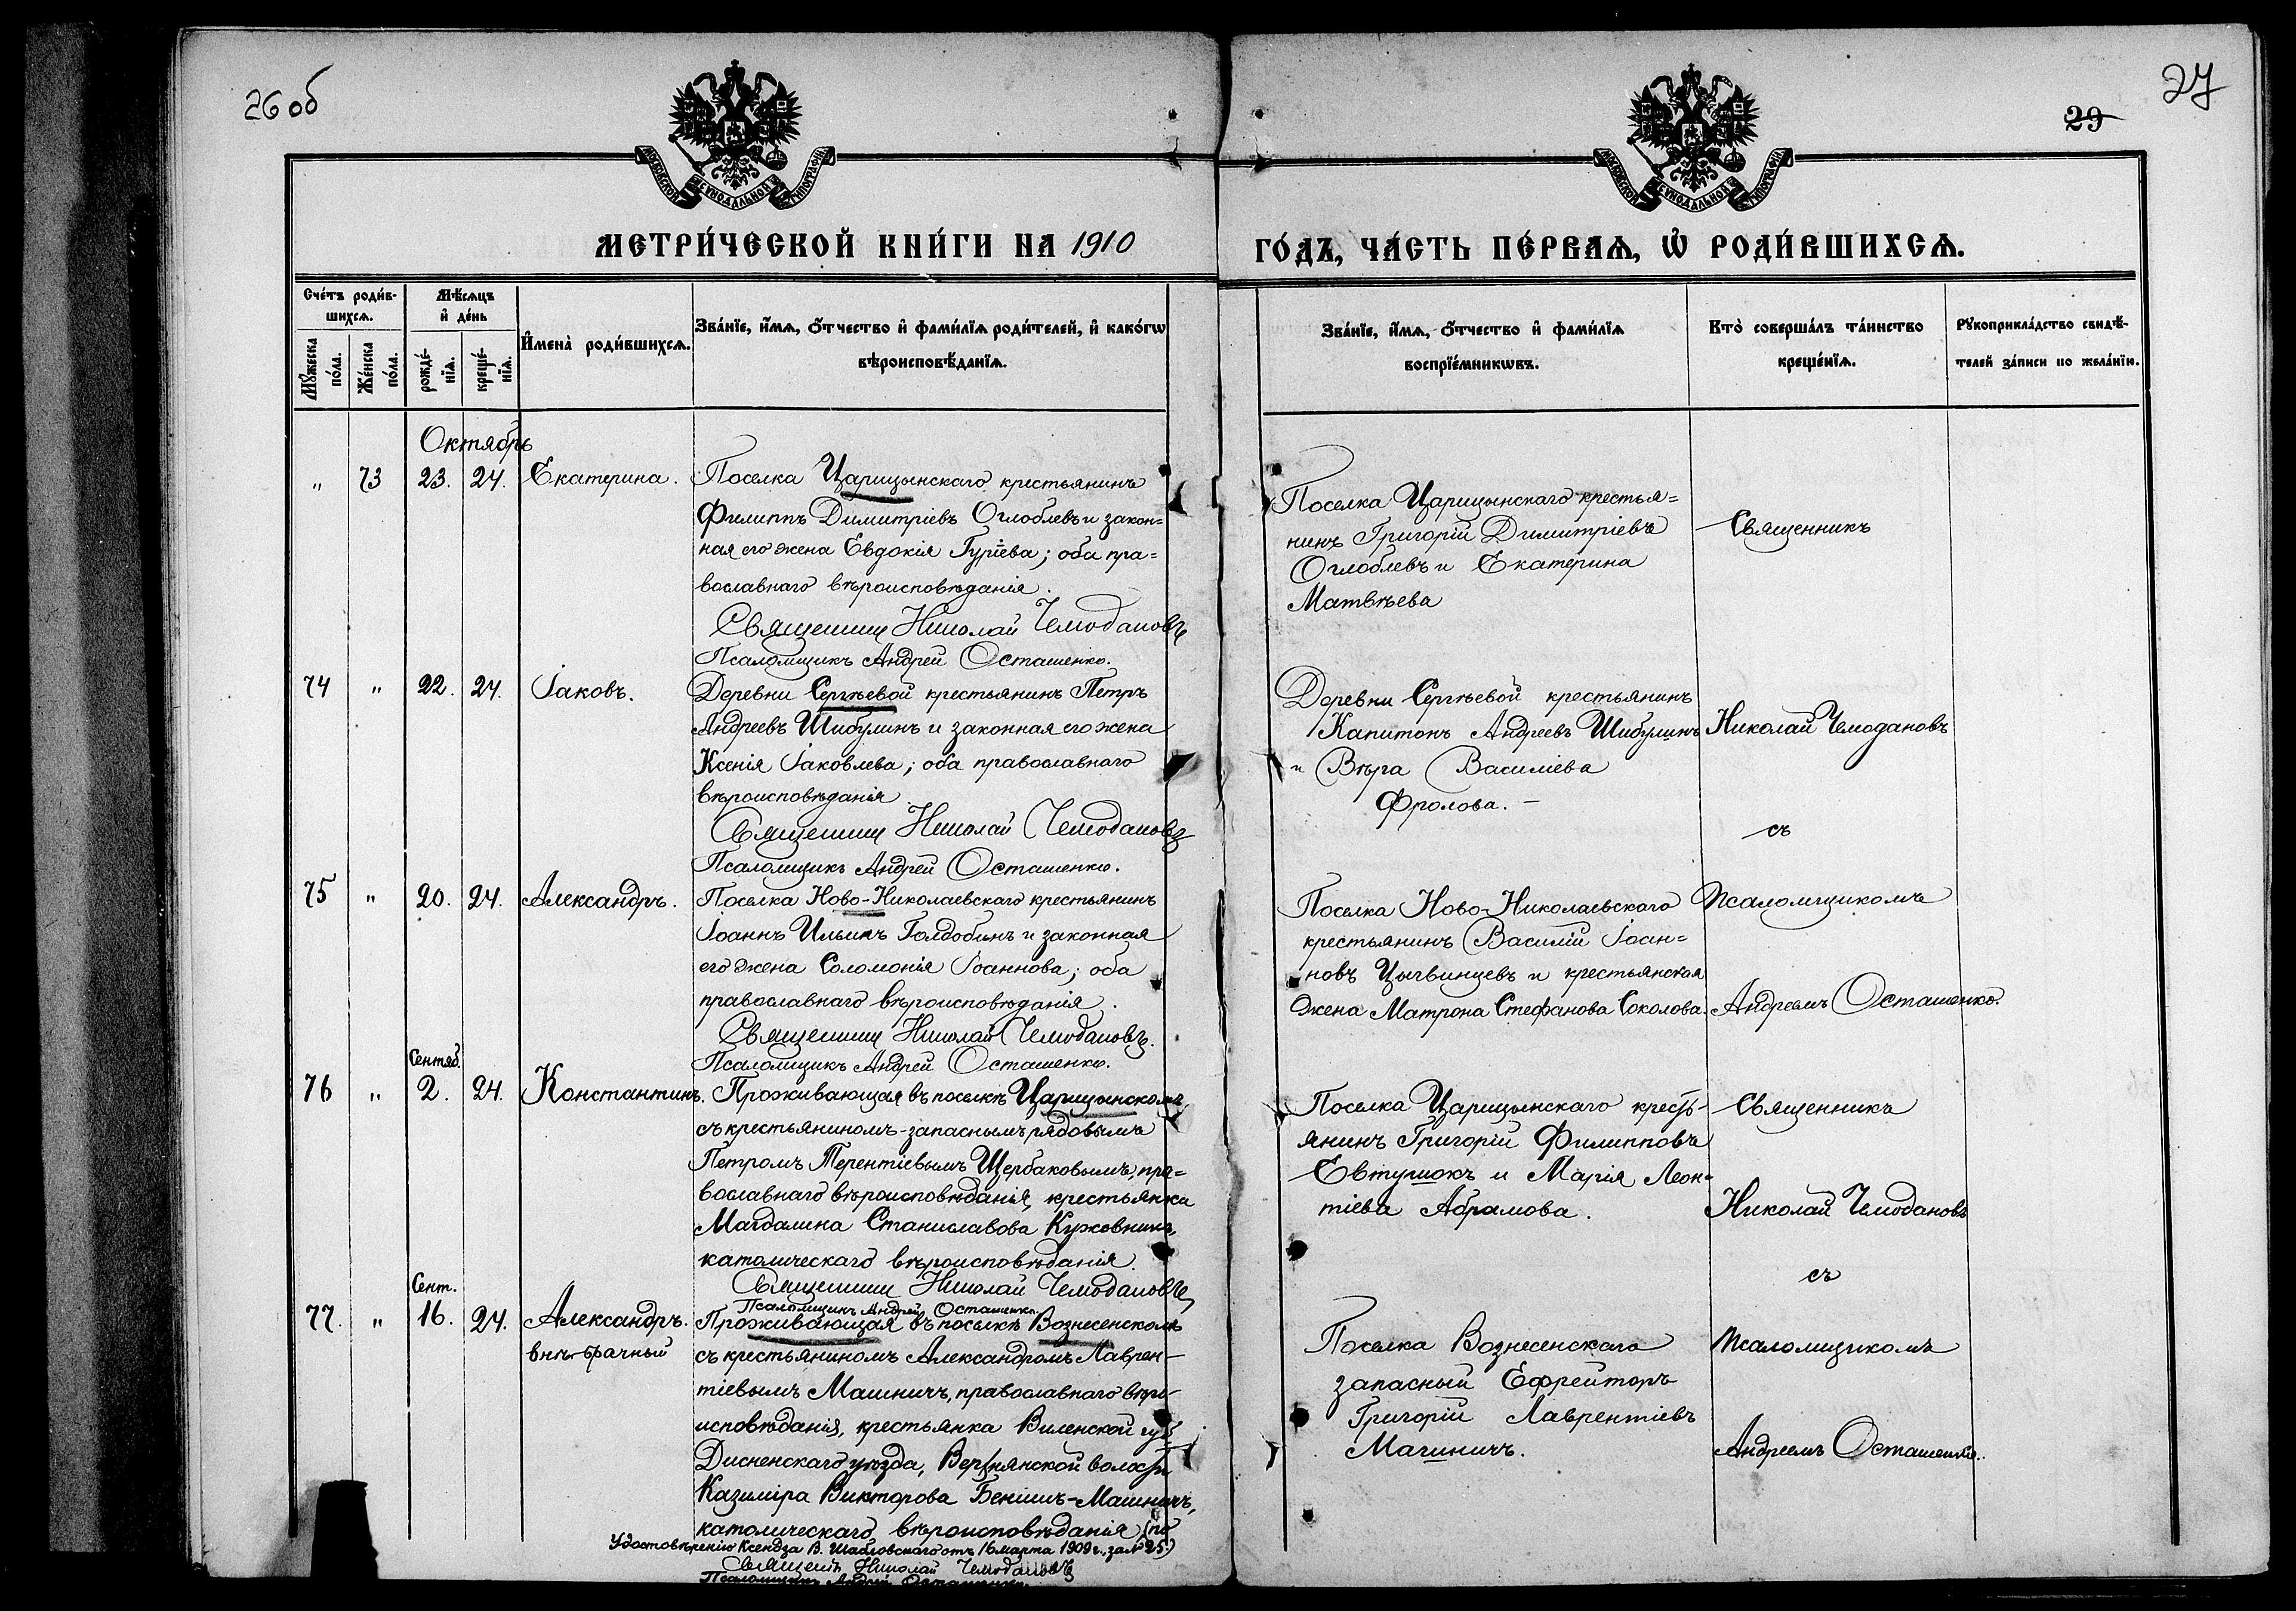 26 об
27
29
МОСКОВСКОЙ СѴНОДАЛЬНОЙ ТИПОГРАФІИ
МОСКОВСКОЙ СѴНОДАЛЬНОЙ ТИПОГРАФІИ
МЕТРИ́ЧЕСКОЙ КНИ́ГИ НА 1910
ГО́ДЪ, ЧА́СТЬ ПЕ́РВАѦ, Ѡ҆ РОДИ́ВШИХСѦ.
Сче́тъ роди́в-
шихсѧ.
Мꙋ́жеска
по́ла.
Же́нска
по́ла.
Мѣ́сѧцъ
и҆ де́нь
рожде́-
нїѧ.
креще́-
нїѧ.
И҆мена̀ роди́вшихсѧ.
Зва́нїе, и҆́мѧ, ѻ҆́тчество и҆ фами́лїѧ роди́телей, и҆ како́гѡ
вѣроисповѣ́данїѧ.
Зва́нїе, и҆́мѧ, ѻ҆́тчество и҆ фами́лїѧ
воспрїе́мникѡвъ.
Кто̀ соверша́лъ та́инство
креще́нїѧ.
Рꙋкоприкла́дство свидѣ́-
телей за́писи по жела́нїю.
Октябрь
„ 73 23. 24. Екатерина.
Поселка Царицынскаго крестьянинъ
Филиппъ Димитріевъ Оглоблевъ и закон=
ная его жена Евдокія Гуріева; оба пра=
вославнаго вѣроисповѣданія.
Священникъ Николай Чемодановъ
Псаломщикъ Андрей Осташенко.
Поселка Царицынскаго крестья=
нинъ Григорій Димитріевъ
Оглоблевъ и Екатерина
Матвѣева
Священникъ
74 „ 22. 24. Іаковъ.
Деревни Сергѣевой крестьянинъ Петръ
Андреевъ Шибулинъ и законная его жена
Ксенія Іаковлева; оба православнаго
вѣроисповѣданія.
Священникъ Николай Чемодановъ
Псаломщикъ Андрей Осташенко.
Деревни Сергѣевой крестьянинъ
Капитонъ Андреевъ Шибулинъ
и Вѣра Василіева
Фролова. –
Николай Чемодановъ
съ
75 „ 20. 24. Александръ.
Поселка Ново-Николаевскаго крестьянинъ
Іоаннъ Ильинъ Голдобинъ и законная
его жена Соломонія Іоаннова; оба
православнаго вѣроисповѣданія.
Священникъ Николай Чемодановъ.
Псаломщикъ Андрей Осташенко.
Поселка Ново-Николаевскаго
крестьянинъ Василій Іоан=
новъ Цывинцевъ и крестьянская
жена Матрона Стефанова Соколова.
Псаломщикомъ
Андреемъ Осташенко.
Сентяб.
76 „ 2. 24. Константинъ.
Проживающая въ поселкѣ Царицынскомъ
съ крестьяниномъ-запаснымъ рядовымъ
Петромъ Терентіевымъ Щербаковымъ, пра=
вославнаго вѣроисповѣданія, крестьянка
Магдалина Станиславова Кужовникъ,
католическаго вѣроисповѣданія.
Священникъ Николай Чемодановъ
Псаломщикъ Андрей Осташенко.
Поселка Царицынскаго кресть-
янинъ Григорій Филипповъ
Евтушокъ и Марія Леон=
тіева Абрамова.
Священникъ
Николай Чемодановъ
съ
Сент.
77. „ 16. 24. Александръ.
внѣ-брачный
Проживающая въ поселкѣ Вознесенскомъ
съ крестьяниномъ Александромъ Лаврен-
тіевымъ Машничъ, православнаго вѣро-
исповѣданія, крестьянка Виленской губ.
Дисненскаго уѣзда, Верхнянской волости
Казиміра Викторова Бенишъ-Машничъ,
католическаго вѣроисповѣданія (по
Удостовѣренію Ксендза В. Шабловскаго отъ 16 марта 1909 г., за № 25.)
Священ. Николай Чемодановъ
Псаломщикъ Андрей Осташенко.
Поселка Вознесенскаго
запасный Ефрейторъ
Григорій Лаврентіевъ
Машничъ.
Псаломщикомъ
Андреемъ Осташенко.